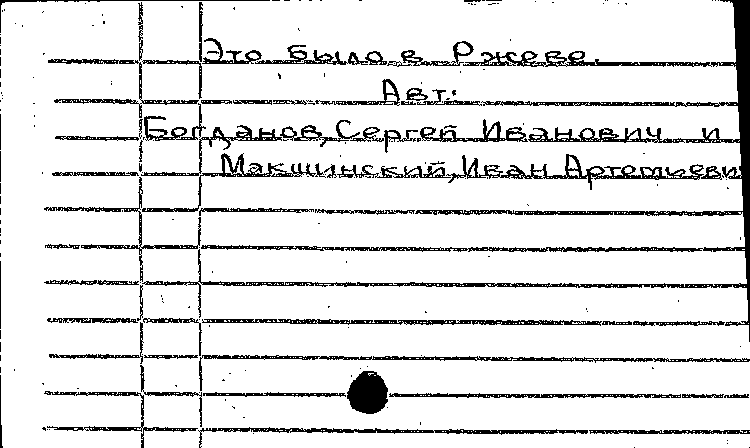 Это было в Ржеве.
Авт.:
Богданов, Сергей Иванович и
Макшинский, Иван Артемьеви